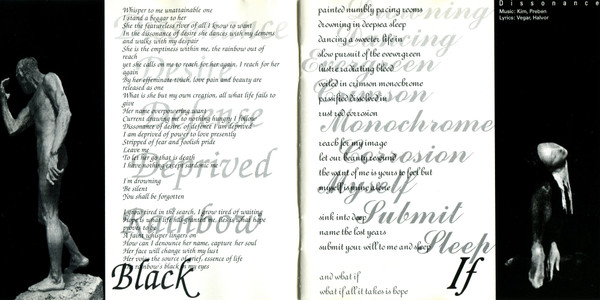 Whisper to me unattainable one
I stand a beggar to her
She the featureless river of all I know to want
In the dissonance of desire she dances with my demons
and walks with my despair
She is the emptiness within me, the rainbow out of
reach
yet she calls on me to reach for her again, I reach for her
again
By her effeminate touch, love pain and beauty are
released as one
What is she but my own creation, all what life fails to
give
Her name overpowering
Current to nothing hungry I follow
Dissonance of desire, of defence I am deprived
I am deprived of power to love presently
Stripped of fear and foolish pride
Leave me
To let her go that is death
I have nothing except sardonic
I'm drowning
Be silent
You shall be forgotten
tired in the search, I grow tired of waiting
A faint whisper lingers on
How can I denounce her name, capture her soul
Her face will change with my lust
Her voice the source of grief, essence of life
rainbow's black in my eyes
Desire
Defence
Deprived
Rainbow
Black
painted numbly pacing rooms
drowning in deepsea sleep
dancing a sweeter life in
slow pursuit of the evergreen
lustre radiating blood
veiled in crimson monochrome
passified dissolved in
rust red corrosion
reach for my image
let our beauty
the want of me is yours to feel but
myself is mine alone
sink into deep
name the lost years
submit your will to me and sleep
and what if
what if all it takes is hope
Drowning
Dancing
Evergreen
Crimson
Monochrome
Corrosion
Myself
Submit
Sleep
If
Dissonance
Music: Kim, Preben
Lyrics: Vegar, Halvor